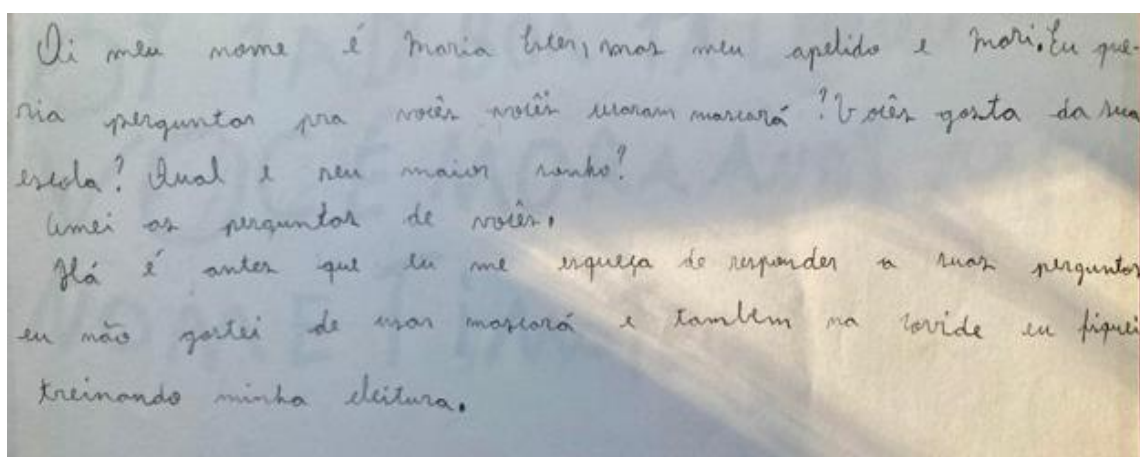 Oi meu nome é Maria Ester, mas meu apelido e Mari. Eu que-
ria perguntar pra vocês vocês usaram mascará? Vocês gosta da sua
escola? Qual e seu maior sonho?
Amei as perguntas de vocês.
Há é antes que eu me esqueça de responder a suas perguntas
eu não gostei de usar mascará e tambem na covide eu fiquei
treinando minha eleitura.